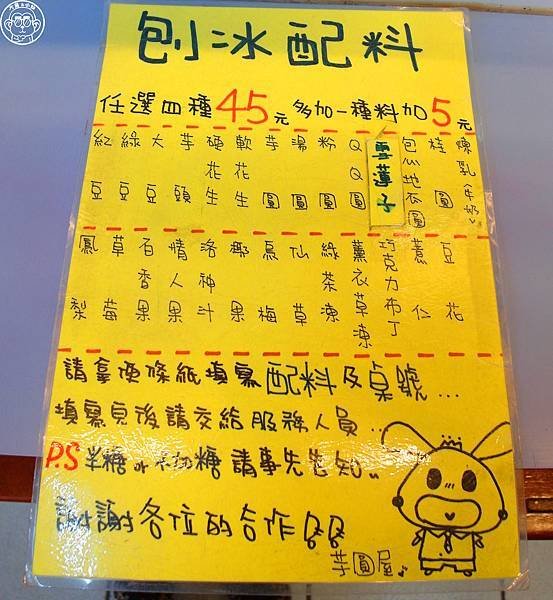 刨冰配料
任選四種45元 多加一種料加5元
紅豆
綠豆
大豆
芋頭
硬花生
軟花生
芋圓
湯圓
粉圓
QQ圓
雪蓮子
包心地瓜圓
桂圓
煉乳(牛奶)
鳳梨
草莓
百香果
情人果
洛神汁
椰果
烏梅
仙草
綠茶凍
薰衣草凍
巧克力布丁
薏仁
豆花
請拿便條紙填寫配料及桌號...
填寫完後請交給服務人員...
P.S 半糖or不加糖請事先告知
謝謝各位的合作QQ
芋圓屋